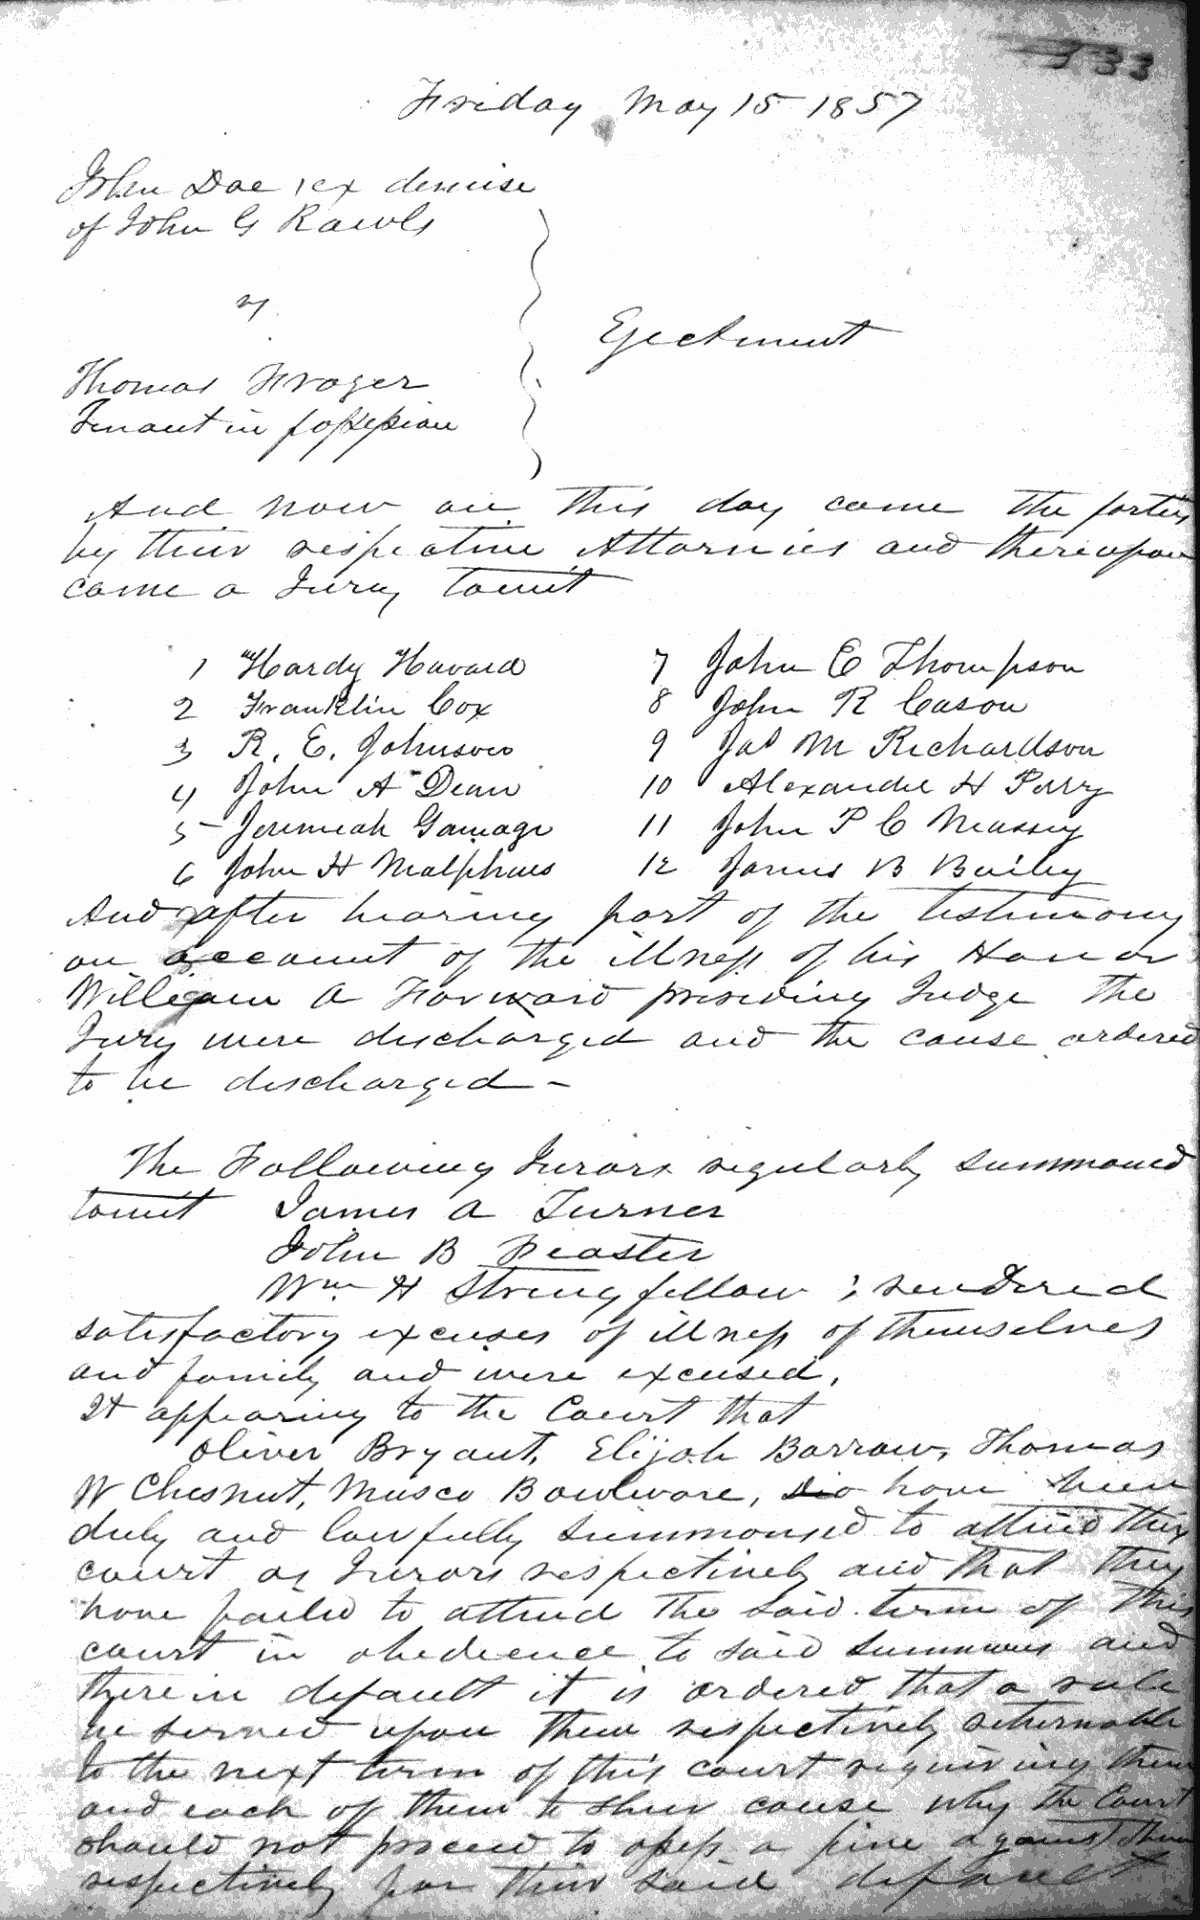 333
Friday May 15 1857
John Doe, ex demise
of John G Rawls
vs
Thomas Frazer
Tenant in possession
Ejectment
And now on this day came the parties
by their respective Attornies and thereupon
came a Jury towit
1 Hardy Havard
2 Franklin Cox
3 R. E. Johnson
4 John A Dean
5 Jeremiah Gamage
6 John H Malphus
7 John C Thompson
8 John R Cason
9 Jas M Richardson
10 Alexander H Perry
11 John P C Massey
12 James B Bailey
And after hearing part of the testimony
on account of the illness of his Honor
William A Forward presiding Judge the
Jury were discharged and the cause ordered
to be discharged -
The Following Jurors regularly summoned
towit James A Turner
John B Feaster
Wm H Stringfellow ; rendered
satisfactory excuses of illness of themselves
and family and were excused.
It appearing to the Court that
Oliver Bryant, Elijah Barrow, Thomas
W Chesnut, Musco Boulware, have been
duly and lawfully summonsed to attend this
court as Jurors respectively and that they
have failed to attend the said term of this
court in obedience to said summons and
therein default it is ordered that a rule
be served upon them respectively returnable
to the next term of this court requiring them
and each of them to shew cause why the Court
should not proceed to assess a fine against them
respectively for their said default